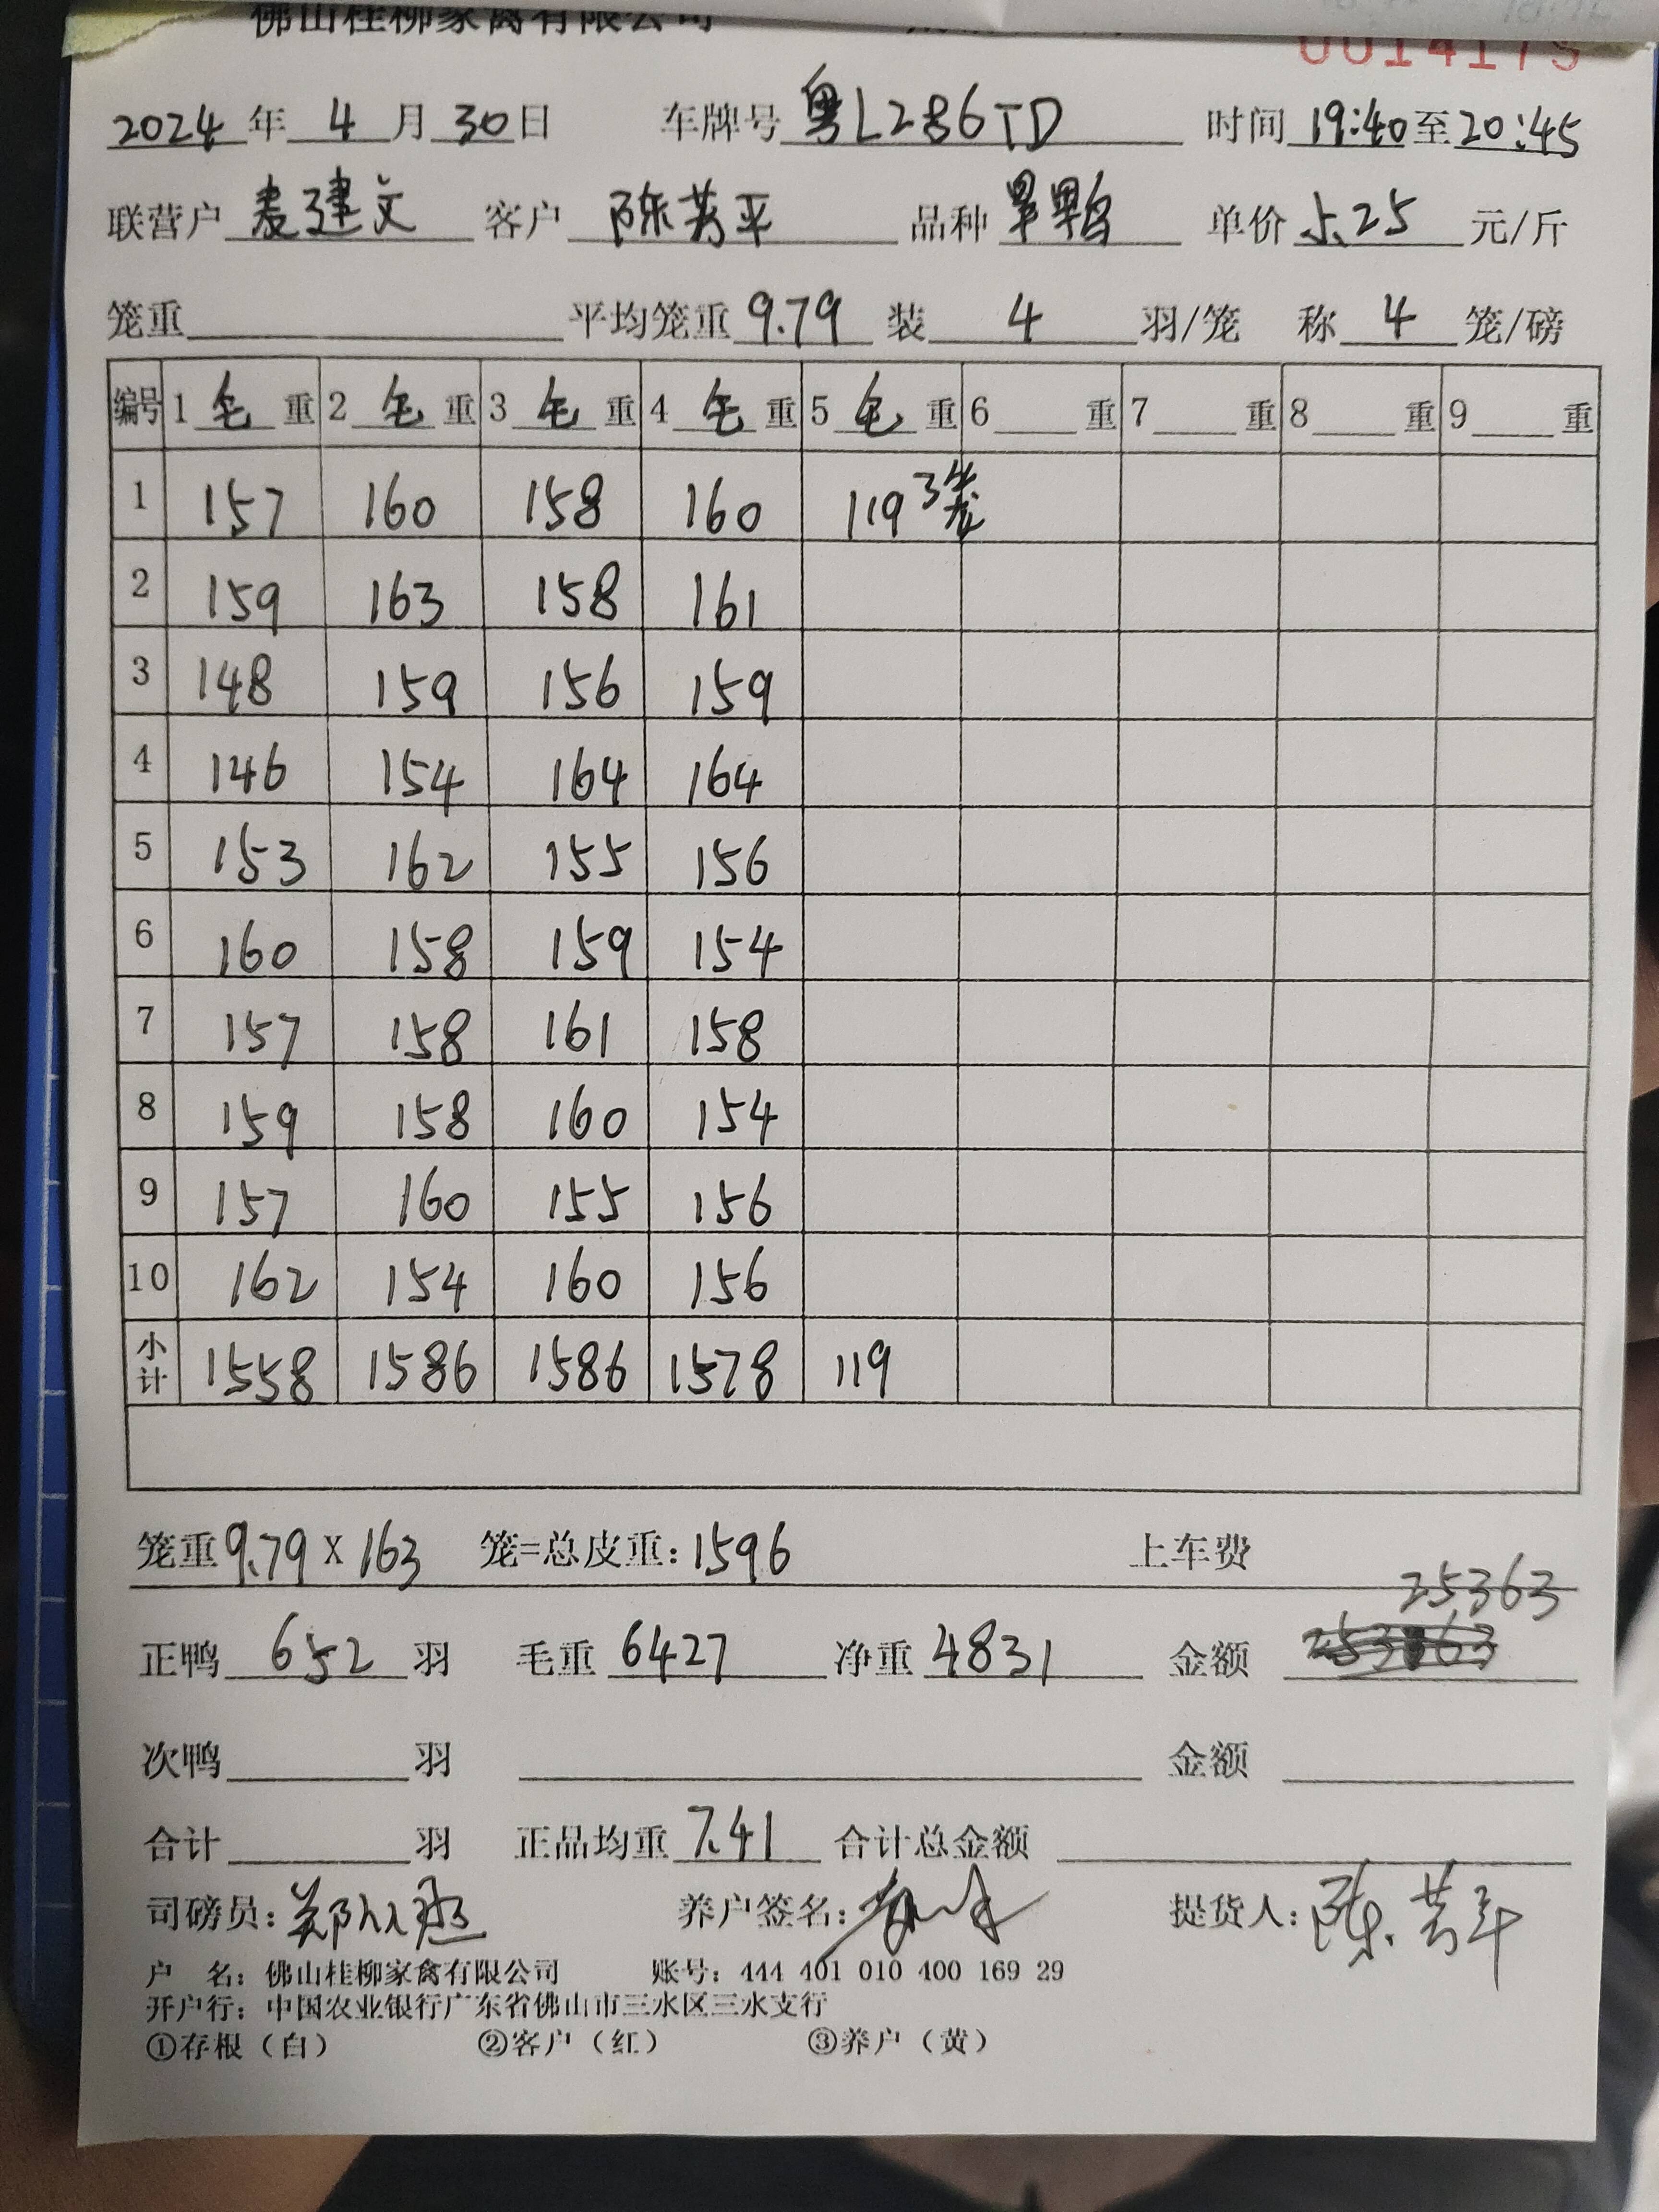 佛山桂柳家禽有限公司
0014175
2024年4月30日 车牌号 粤L286TD 时间 19:40至20:45
联营户 麦建文 客户 陈芳平 品种 单价 5.25 元/斤
笼重 平均笼重 9.79 装 4 羽/笼 称 4 笼/磅
编号 1 毛 重 2 毛 重 3 毛 重 4 毛 重 5 毛 重 6 重 7 重 8 重 9 重
1 157 160 158 160 119 3笼
2 159 163 158 161
3 148 159 156 159
4 146 154 164 164
5 153 162 155 156
6 160 158 159 154
7 157 158 161 158
8 159 158 160 154
9 157 160 155 156
10 162 154 160 156
小计 1558 1586 1586 1578 119
笼重 9.79 X 163 笼=总皮重: 1596 上车费
25363
正鸭 652 羽 毛重 6427 净重 4831 金额
次鸭 羽 金额
合计 羽 正品均重 7.41 合计总金额
司磅员: 养户签名: 提货人: 陈芳平
户 名: 佛山桂柳家禽有限公司 账号: 444 401 010 400 169 29
开户行: 中国农业银行广东省佛山市三水区三水支行
①存根(白) ②客户(红) ③养户(黄)